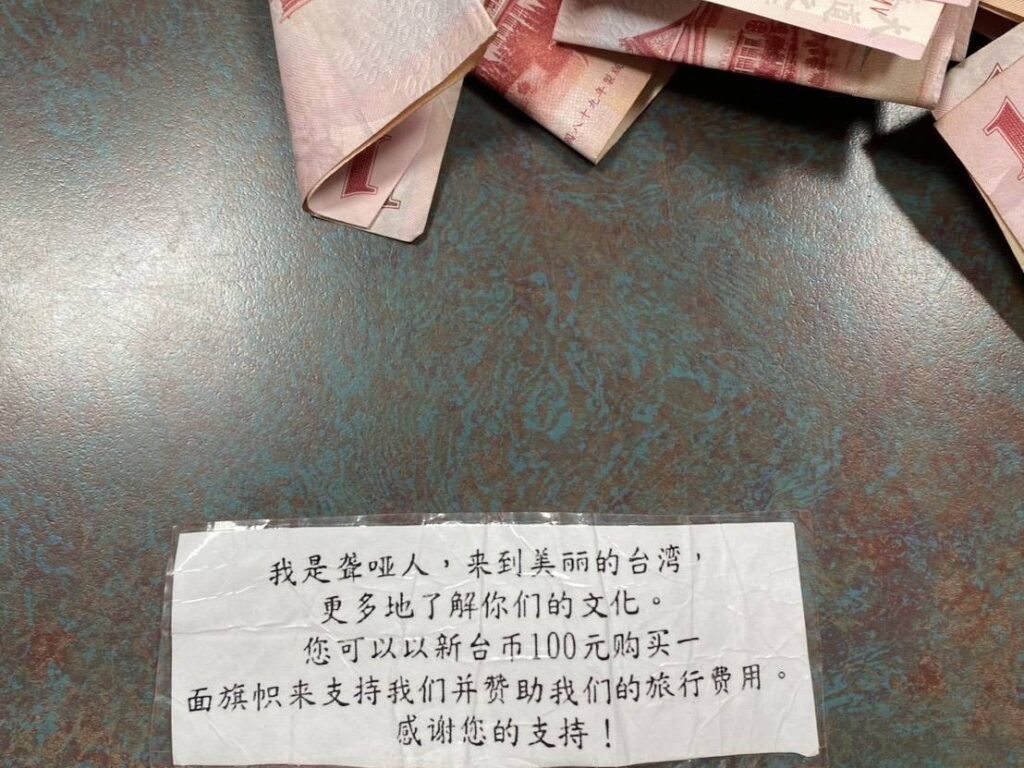 八十九年製
1
1
我是聋哑人，来到美丽的台湾，
更多地了解你们的文化。
您可以以新台币100元购买一
面旗帜来支持我们并赞助我们的旅行费用。
感谢您的支持！